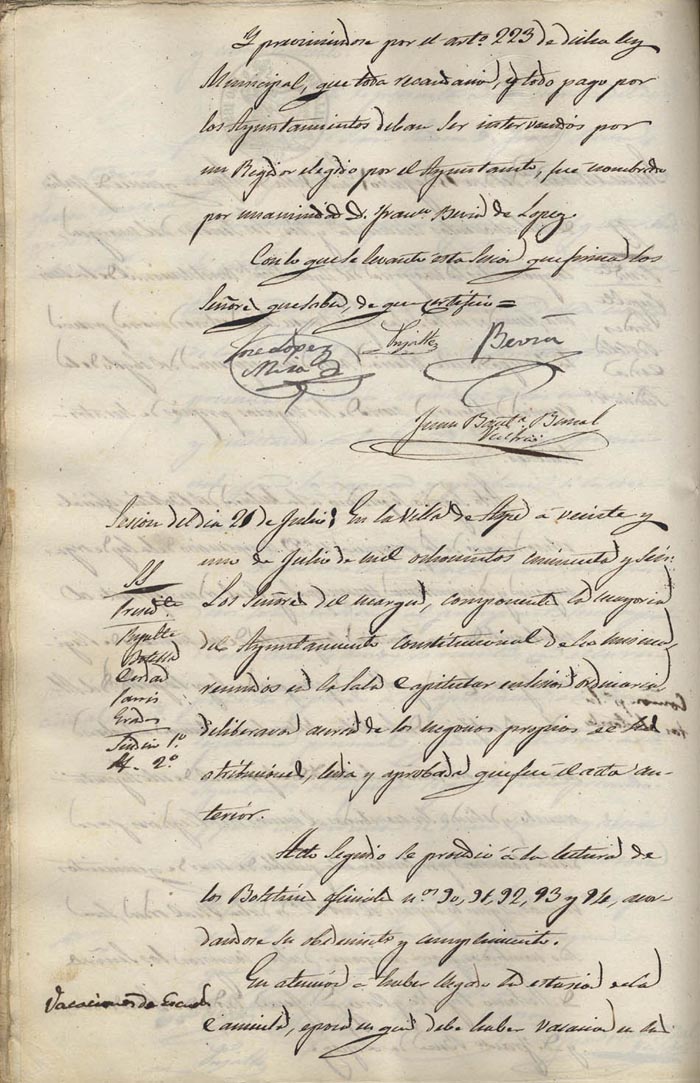 Y previniendose por el arto. 223 de dicha ley
Municipal, que toda recaudacion, y todo pago por
los Ayuntamientos deban ser intervenidos por
un Regidor elegido por el Ayuntamto., fue nombrado
por unanimidad D. Franco. Beviá de Lopez.
Con lo que se levantó esta Sesion que firman los
Señores que saben, de que certifico =
Jose Lopez
Mira
Pujalte
Beviá
Juan Bauta. Bernal
Sesion del dia 21 de Julio
En la Villa de Aspe á veinte y
uno de Julio de mil ochocientos cincuenta y seis:
Los Señores del margen, componentes la mayoria
del Ayuntamiento constitucional de la misma,
reunidos en la Sala Capitular en sesion ordinaria
deliberaron acerca de los negocios propios de sus
atribuciones, leida y aprobada que fue el acta an-
terior.
SS
Presidte.
Pujalte
Botella
Cerdan
Parres
Grados
Sindico 1o.
Id. 2o.
Acto seguido se procedió á la lectura de
los Boletines oficiales nos. 90, 91, 92, 93 y 94, acor-
dandose su obedecimto. y cumplimiento.
Vacaciones de Escuelas
En atencion a haber llegado la estacion de la
Canicula, epoca en que debe haber vacacion en las